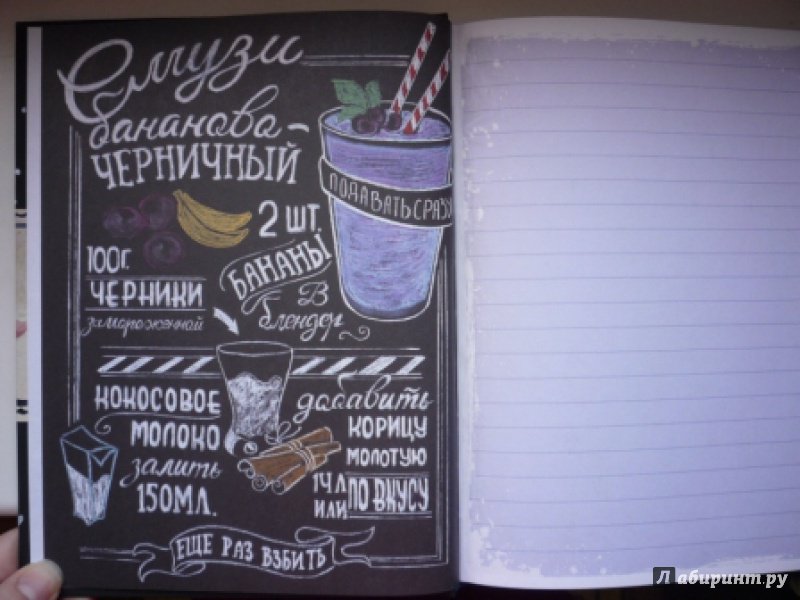 Смузи
бананово-
ЧЕРНИЧНЫЙ
ПОДАВАТЬ СРАЗУ
2 ШТ.
БАНАНЫ
В
блендер
100г.
ЧЕРНИКИ
замороженной
КОКОСОВОЕ
МОЛОКО
залить
150МЛ.
добавить
КОРИЦУ
МОЛОТУЮ
1ЧЛ
ИЛИ
ПО ВКУСУ
ЕЩЕ РАЗ ВЗБИТЬ
Лабиринт.ру